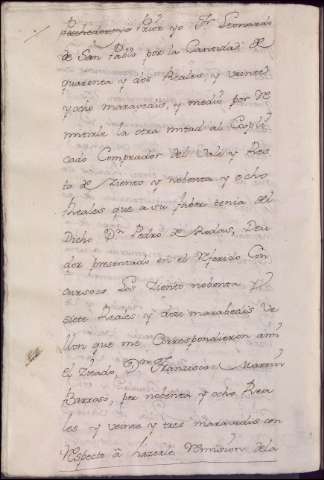 Prior yo Fr. Leonardo
de San Pablo por la Cantidad de
quarenta y dos Reales, y veinte
y ocho maravedis, y medio por re
mitirle la otra mitad al Expli
cado Comprador del Vale y Res
to de Ziento y nobenta y ocho
Reales que a su fabor tenia el
Dicho Dn. Pedro de Deu
dor presentado en el Referido Con
curso: Los Ziento nobenta y
siete Reales y doze marabedis Ve
llon que me Correspondieron a mi
el Zitado Dn. Francisco Martin
Barroso, por nobenta y ocho Rea
les y veinte y tres maravedis con
respecto à hazerle Remision de la